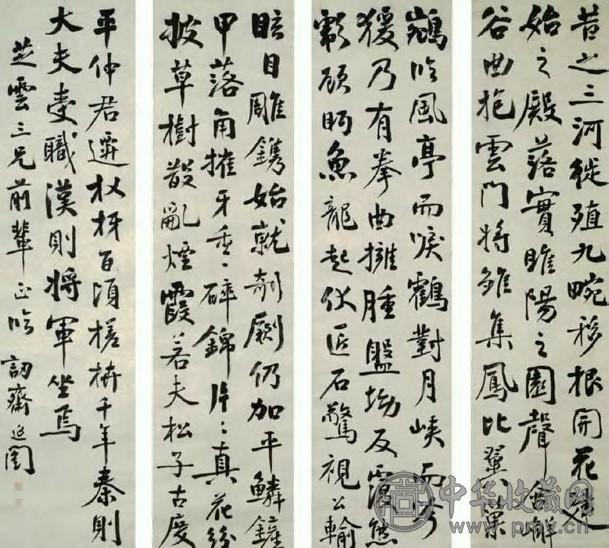 昔之三河徙殖九畹移根開花建
始之殿落實睢陽之園聲含嶰
谷曲抱雲門將雛集鳳比翼巢
鵷臨風亭而唳鶴對月峽而吟
猨乃有拳曲擁腫盤坳反覆熊
彪顧眄魚龍起伏匠石驚視公輸
眩目雕鐫始就剞劂仍加平鱗鏟
甲落角摧牙重々碎錦片々真花紛
披草樹散亂煙霞若夫松子古度
平仲君遷杈枒百頃槎枿千年秦則
大夫受職漢則將軍坐焉
芝雲三兄前輩正臨 訒齋延闓
中华收藏网